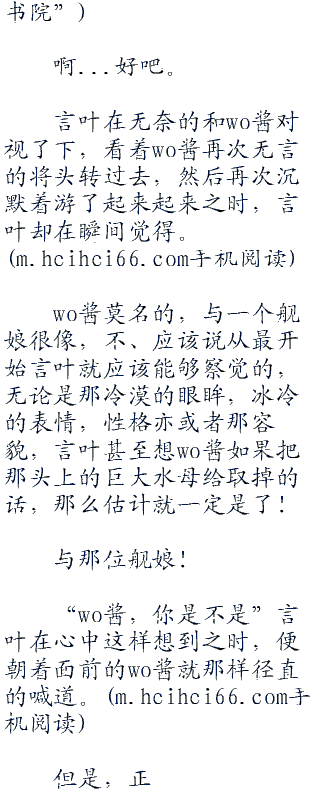 书院”）
啊...好吧。
言叶在无奈的和wo酱对
视了下，看着wo酱再次无言
的将头转过去，然后再次沉
默着游了起来起来之时，言
叶却在瞬间觉得。
(m.hcihci66.com手机阅读)
wo酱莫名的，与一个舰
娘很像，不、应该说从最开
始言叶就应该能够察觉的，
无论是那冷漠的眼眸，冰冷
的表情，性格亦或者那容
貌，言叶甚至想wo酱如果把
那头上的巨大水母给取掉的
话，那么估计就一定是了！
与那位舰娘！
“wo酱，你是不是”言
叶在心中这样想到之时，便
朝着面前的wo酱就那样径直
的喊道。(m.hcihci66.com手
机阅读)
但是，正